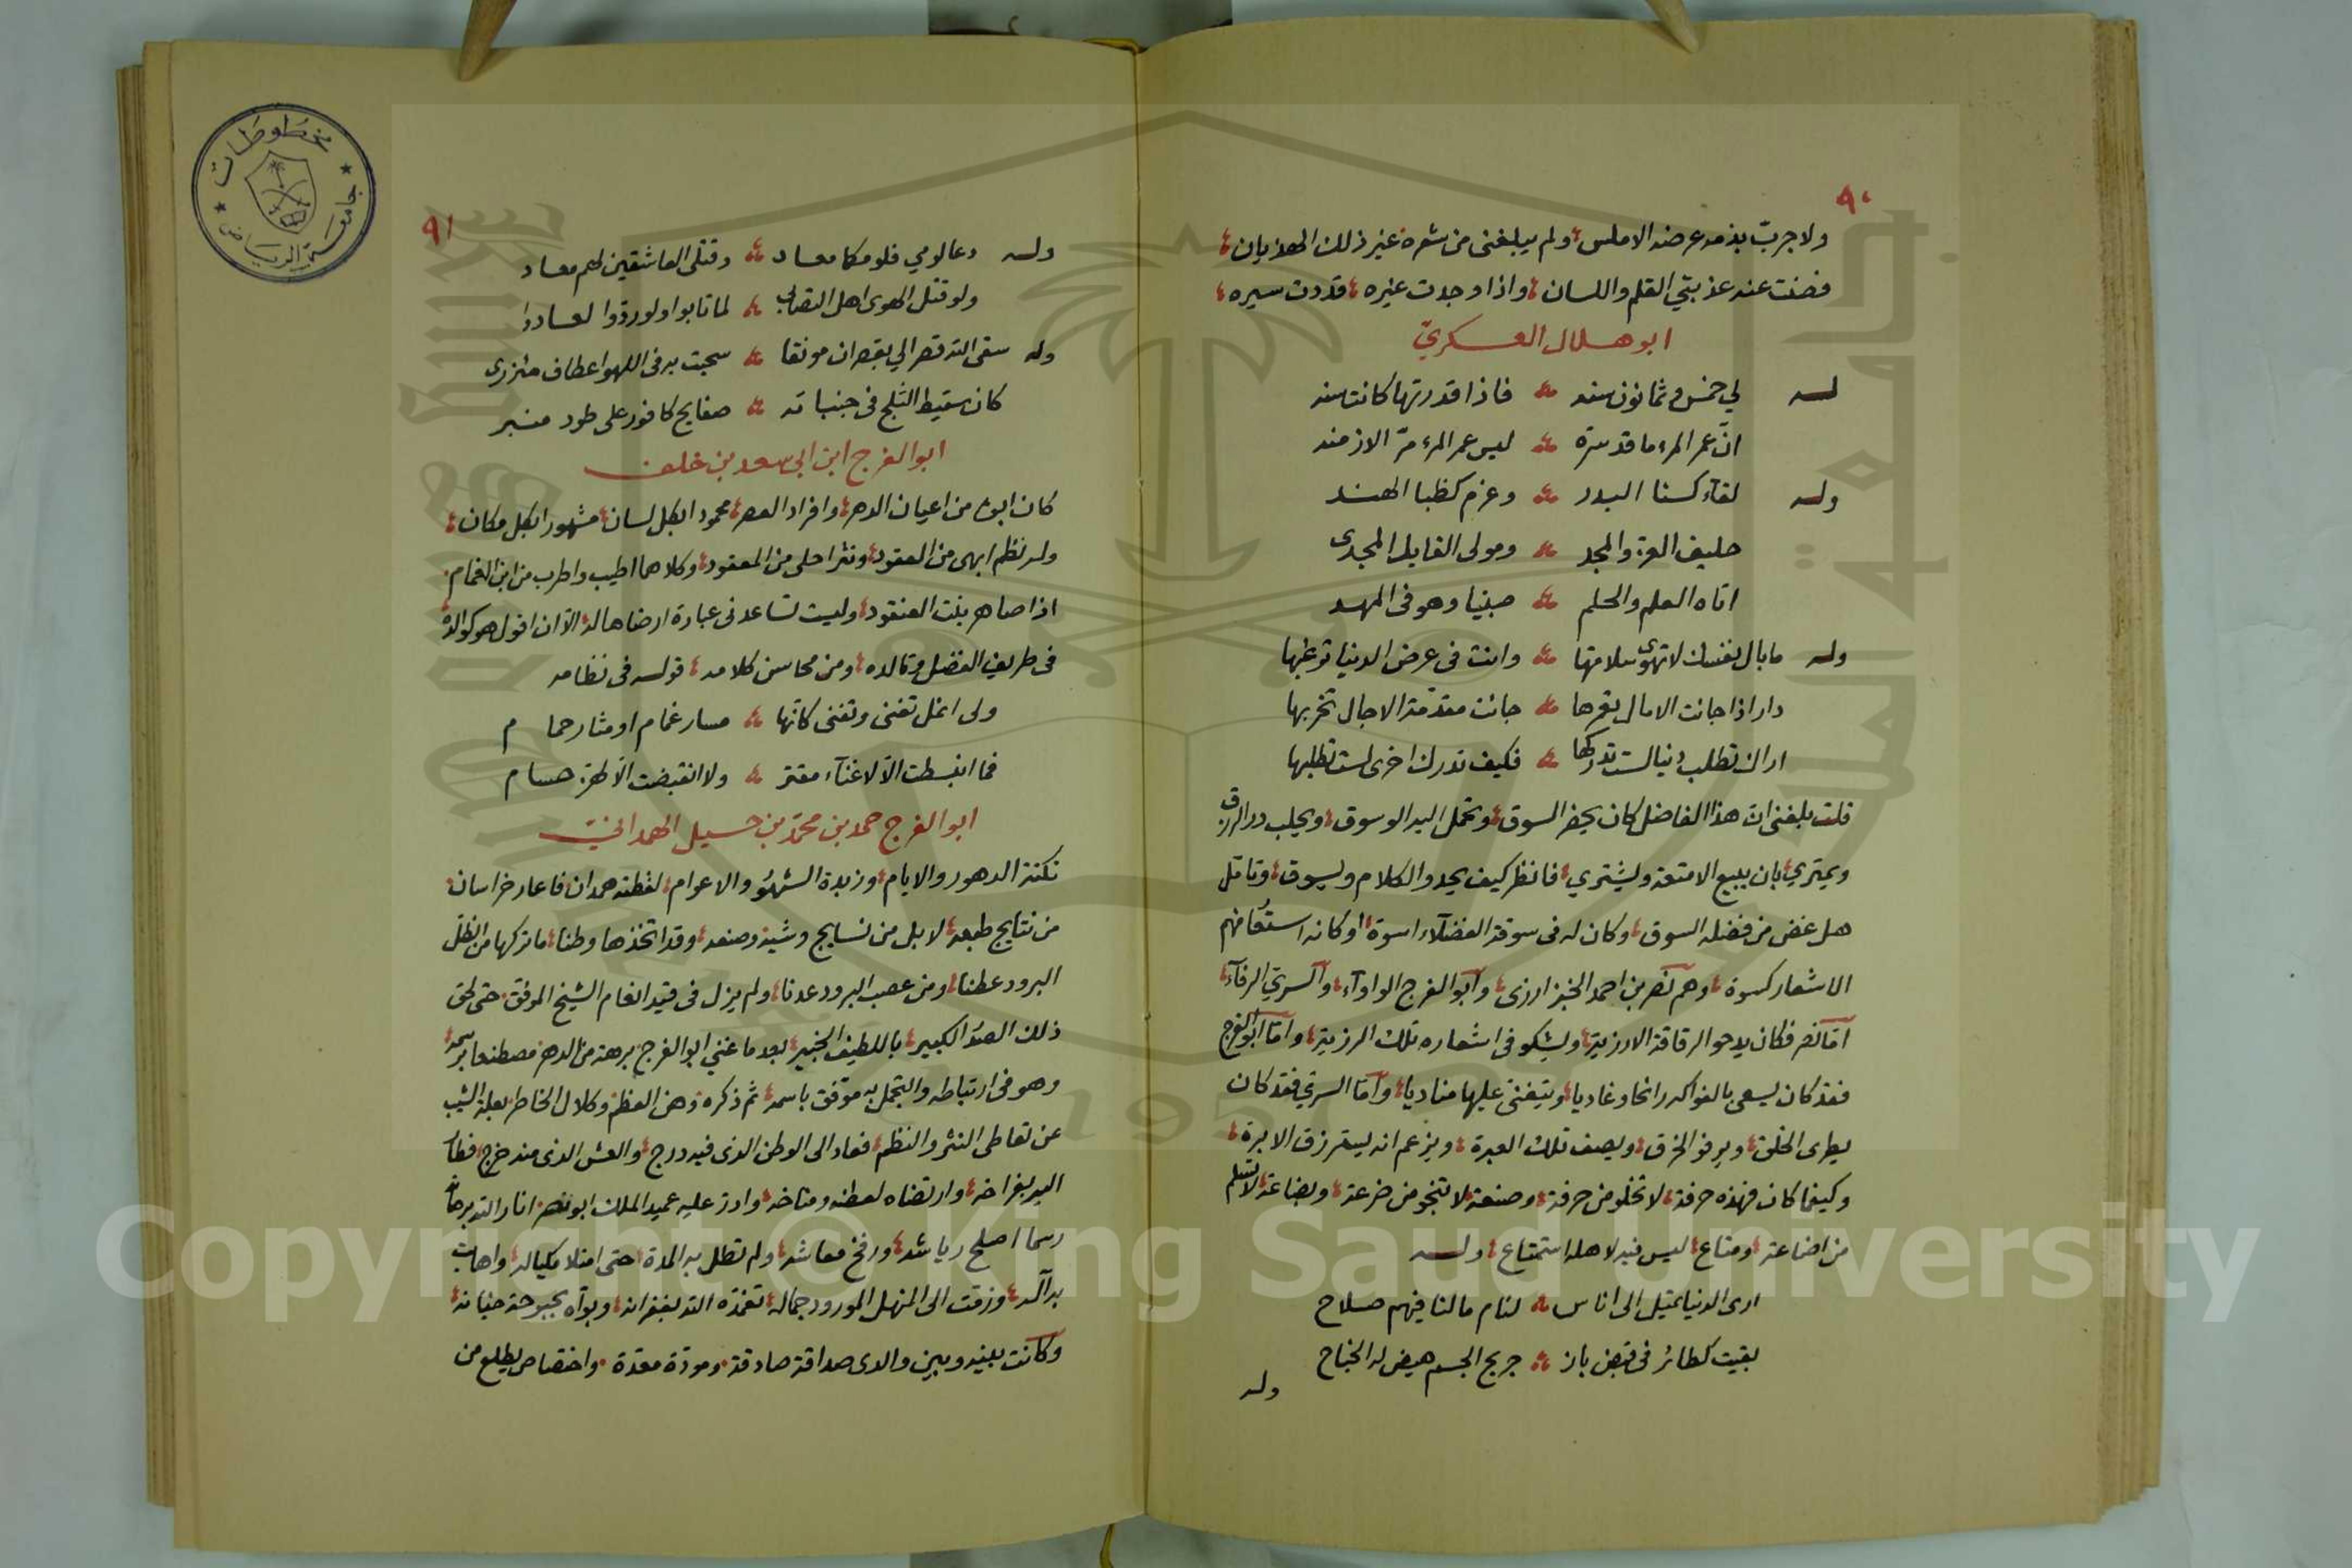 ٩٠
ولا جربّ بذمه عرضه الاملس ولم يبلغنى من شعره غير ذلك الهذيان
فصنت عنه عذبتي القلم واللسان واذا وجدت غيره قددت سيره
ابو هلال العسكريّ
له لي خمس وثمانون سنه فاذا قدرتها كانت سنه
انّ عمر المرء ما قد سرّه ليس عمر المرء مرّ الازمنه
وله لقآء كسنا البدر وعزم كظبا الهند
حليف العز والمجد ومولى القايل المجدى
اتاه العلم والحلم صبيا وهو فى المهد
وله ما بال نفسك لا تهوى سلامتها وانت فى عرض الدنيا ترغبها
دار اذا جانت الامال تعمرها جانت مقدّمة الاجال تخربها
اراك تطلب دنيا لست تدركها فكيف تدرك اخرى لست تطلبها
قلت بلغنى انّ هذا الفاضل كان يحضر السوق وتحمل اليه الوسوق ويحلب در الرزق
ويمترى بان يبيع الامتعة ويشتري فانظر كيف يحدو الكلام ويسوق وتامّل
هل غض من فضله السوق وكان له فى سوقة الفضلآء اسوة او كانه استعار منهم
الاشعار كسوة وهم نصر بن احمد الخبز ارزى وابو الفرج الواوآء والسريّ الرفآء
امّا نصر فكان يدحو الرقاقة الارزية ويشكو فى اشعاره تلك الرزية وامّا ابو الفرج
فقد كان يسعى بالفواكه رائحا وغاديا ويتغنى عليها مناديا وامّا السريّ فقد كان
يطرى الخلق ويرفو الخرق ويصف تلك العبرة ويزعم انه يسترزق الابرة
وكيفما كان فهذه حرفة لا تخلو من حرفة وصنعة لا تنجو من ضرعة وبضاعة لا تسلم
من اضاعة ومتاع ليس فيه لاهله استمتاع وله
ارى الدنيا تميل الى اناس لنام ما لنا فيهم صلاح
بقيت كطائر فى قبض باز جريح الجسم هيض له الجناح
وله
٩١
وله دعا لومي فلومكما معاد وقتلى العاشقين لهم معاد
ولو قتل الهوى اهل التصابى لما تابوا ولو ردّوا لعادوا
وله سقى الله قصرا لي بقصران مونقا سحبت به فى اللهو اعطاف مئزرى
كان سقيط الثلج فى جنباته صفايح كافور على طود منبر
ابو الفرج ابن ابى سعد بن خلف
كان ابوه من اعيان الدهر وافراد العصر محمودا بكل لسان مشهورا بكل مكان
وله نظم ابهى من العقود ونثر احلى من المعقود وكلاهما اطيب واطرب من ابن الغمام
اذا صاهر بنت العنقود وليست تساعدنى عبارة ارضاها له الا ان اقول هو كوالده
فى طريف الفضل وتالده ومن محاسن كلامه قوله فى نظامه
ولى انمل تغنى وتفنى كانّها مسار غمام او مثار حمام
فما انبسطت الّا لاغنآء مقتر ولا انقبضت الّا لهز حسام
ابو الفرج حمد بن محمّد بن حسيل الهمدانيّ
نكتة الدهور والايام وزبدة الشهور والاعوام لفظته همدان فاعار خراسان
من نتايج طبعه لا بل من نسايج وشيه وصنعه وقد اتخذها وطنا ما تركها من الظلّ
البرود عطنا ومن عصب البرود عدنا ولم يزل فى قيد انعام الشيخ الموفق حتى لحق
ذلك الصدر الكبير باللطيف الخبير بعد ما غني ابو الفرج برهة من الدهر مصطنعا برسمه
وهو فى ارتباطه والتجمل به موفق باسمه ثم ذكره وهن العظم وكلال الخاطر بعلة الشيب
عن تعاطى النثر والنظم فعاد الى الوطن الذى فيه درج والعش الذى منه خرج فطار
اليه بفراخه وارتضاه لعطنه ومناخه وادرّ عليه عميد الملك ابو نصر انار الله برهانه
رسما اصلح رياشه ورفّغ معاشه ولم تطل به المدة حتى امتلا مكياله واهابت
به آله وزقت الى المنهل المورود جماله تغمّده الله بغفرانه وبوآه بحبوحة جنانه
وكانت بينه وبين والدى صداقة صادقة ومودّة معقدة واختصاص يطلع من
مخطوطات
جامعة الرياض
1957
Copyright © King Saud University